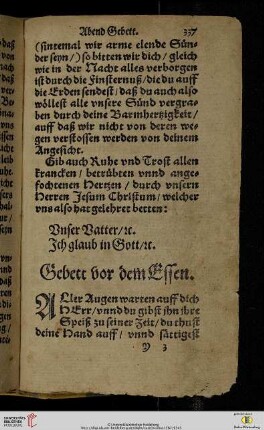 Abend Gebett. 337
(sintemal wir arme elende Sün-
der seyn/) so bitten wir dich/ gleich
wie in der Nacht alles verborgen
ist durch die Finsternuß/ die du auff
die Erden sendest/ daß du auch also
wöllest alle vnsere Sünd vergra-
ben durch deine Barmhertzigkeit/
auff daß wir nicht von deren we-
gen verstossen werden von deinem
Angesicht.
Gib auch Ruhe vnd Trost allen
krancken/ betrübten vnnd ange-
fochtenen Hertzen/ durch vnsern
Herren Jesum Christum/ welcher
vns also hat gelehret betten:
Vnser Vatter/ ꝛc.
Ich glaub in Gott/ ꝛc.
Gebett vor dem Essen.
ALler Augen warten auff dich
HErr/ vnnd du gibst ihn ihre
Speiß zu seiner Zeit/ du thust
deine Hand auff/ vnnd sättigest
Y 3